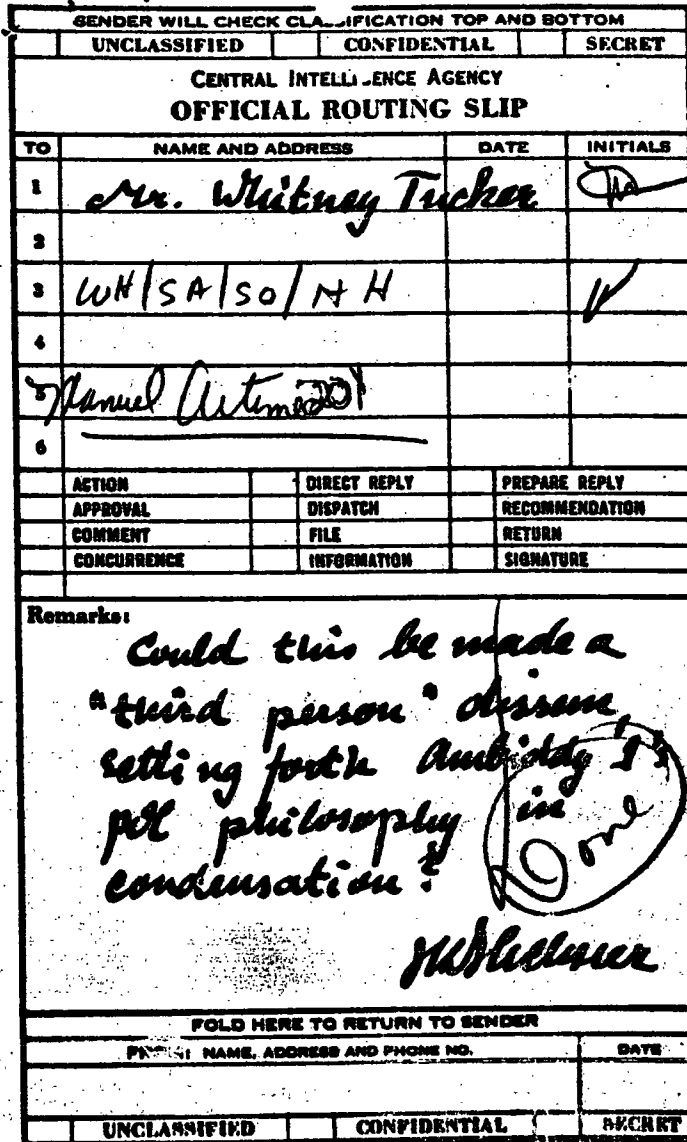 SENDER WILL CHECK CLASSIFICATION TOP AND BOTTOM
UNCLASSIFIED CONFIDENTIAL SECRET
CENTRAL INTELLIGENCE AGENCY
OFFICIAL ROUTING SLIP
TO NAME AND ADDRESS DATE INITIALS
1 Mr. Whitney Tucker
2
3 WH/SA/SO/NH
4
5 Manuel Artime 201
6
ACTION DIRECT REPLY PREPARE REPLY
APPROVAL DISPATCH RECOMMENDATION
COMMENT FILE RETURN
CONCURRENCE INFORMATION SIGNATURE
Remarks:
Could this be made a
"third person" dissem,
setting forth Ambiddy 1's
pol philosophy in
condensation?
Done
FOLD HERE TO RETURN TO SENDER
FROM: NAME, ADDRESS AND PHONE NO. DATE
UNCLASSIFIED CONFIDENTIAL SECRET